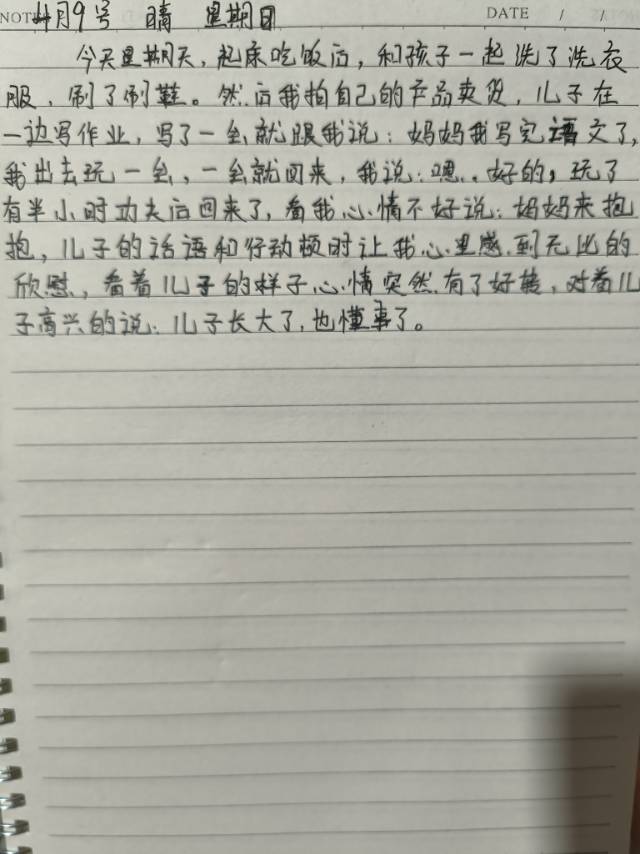 NOTE 4月9号 晴 星期日 DATE / /
今天星期天，起床吃饭后，和孩子一起洗了洗衣
服，刷了刷鞋。然后我拍自己的产品卖货，儿子在
一边写作业，写了一会就跟我说：妈妈我写完语文了，
我出去玩一会，一会就回来，我说：嗯..好的，玩了
有半小时功夫后回来了，看我心情不好说：妈妈来抱
抱，儿子的话语和行动顿时让我心里感到无比的
欣慰，看着儿子的样子心情突然有了好转，对着儿
子高兴的说：儿子长大了，也懂事了。